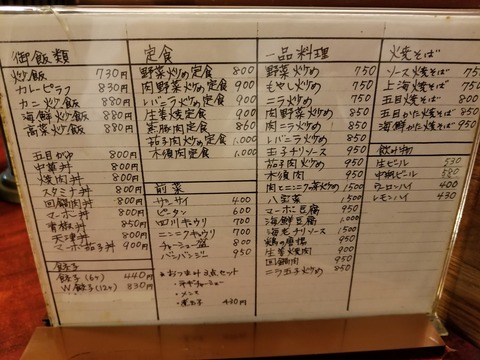 御飯類
炒飯 730円
カレーピラフ 830円
カニ炒飯 880円
海鮮炒飯 880円
高菜炒飯 880円
五目がゆ 800円
中華丼 800円
焼肉丼 800円
スタミナ丼 800円
回鍋肉丼 800円
マーボー丼 800円
青椒丼 850円
天津丼 800円
マーボ茄子丼 900円
餃子
餃子(6ヶ) 440円
W餃子(12ヶ) 830円
定食
野菜炒め定食 800
肉野菜炒め定食 900
レバニラ炒め定食 900
生姜焼定食 900
蒸豚肉定食 860
茄子肉炒め定食 1,000
木須肉定食 1,000
前菜
サンサイ 400
ピータン 600
四川キュウリ 700
ニンニクキュウリ 700
チャーシュー盛 800
バンバンジー 950
★おつまみ3点セット
・ネギチャーシュー
・メンマ
・煮玉子 430円
一品料理
野菜炒め 750
もやし炒め 750
ニラ炒め 750
肉野菜炒め 850
肉ニラ炒め 850
レバニラ炒め 850
玉子チリソース 950
茄子肉炒め 950
木須肉 950
肉とニンニクの芽炒め 1500
八宝菜 1500
マーボ豆腐 950
海鮮豆腐 1500
海老チリソース 1500
鶏の唐揚 950
生姜焼肉 950
回鍋肉 950
ニラ玉子炒め 850
焼そば
ソース焼そば 750
上海焼そば 750
五目焼そば 800
五目かた焼そば 850
海鮮かた焼そば 950
飲み物
生ビール 530
中瓶ビール 580
ウーロンハイ 400
レモンハイ 430